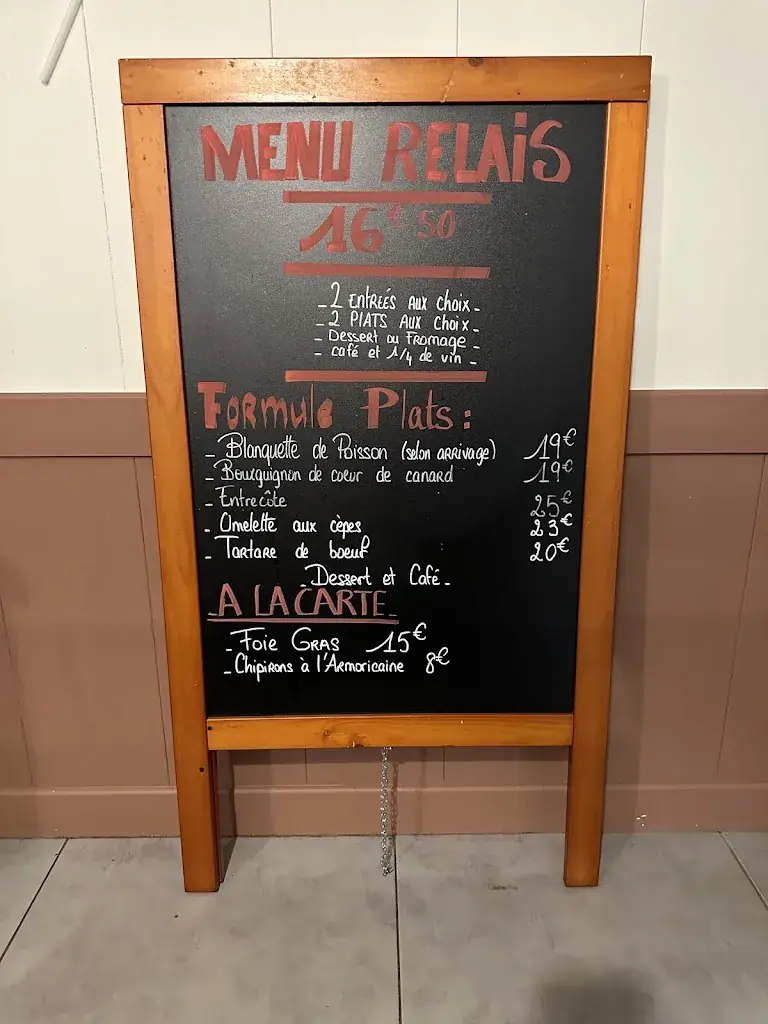 MENU RELAIS
16€50
- 2 ENTRÉES AUX choix -
- 2 PLATS AUX choix -
- Dessert ou Fromage -
- café et 1/4 de vin -
Formule Plats :
- Blanquette de Poisson (selon arrivage) 19€
- Bourguignon de cœur de canard 19€
- Entrecôte 25€
- Omelette aux cèpes 23€
- Tartare de boeuf 20€
- Dessert et Café -
- A LA CARTE -
- Foie Gras 15€
- Chipirons à l'Armoricaine 8€